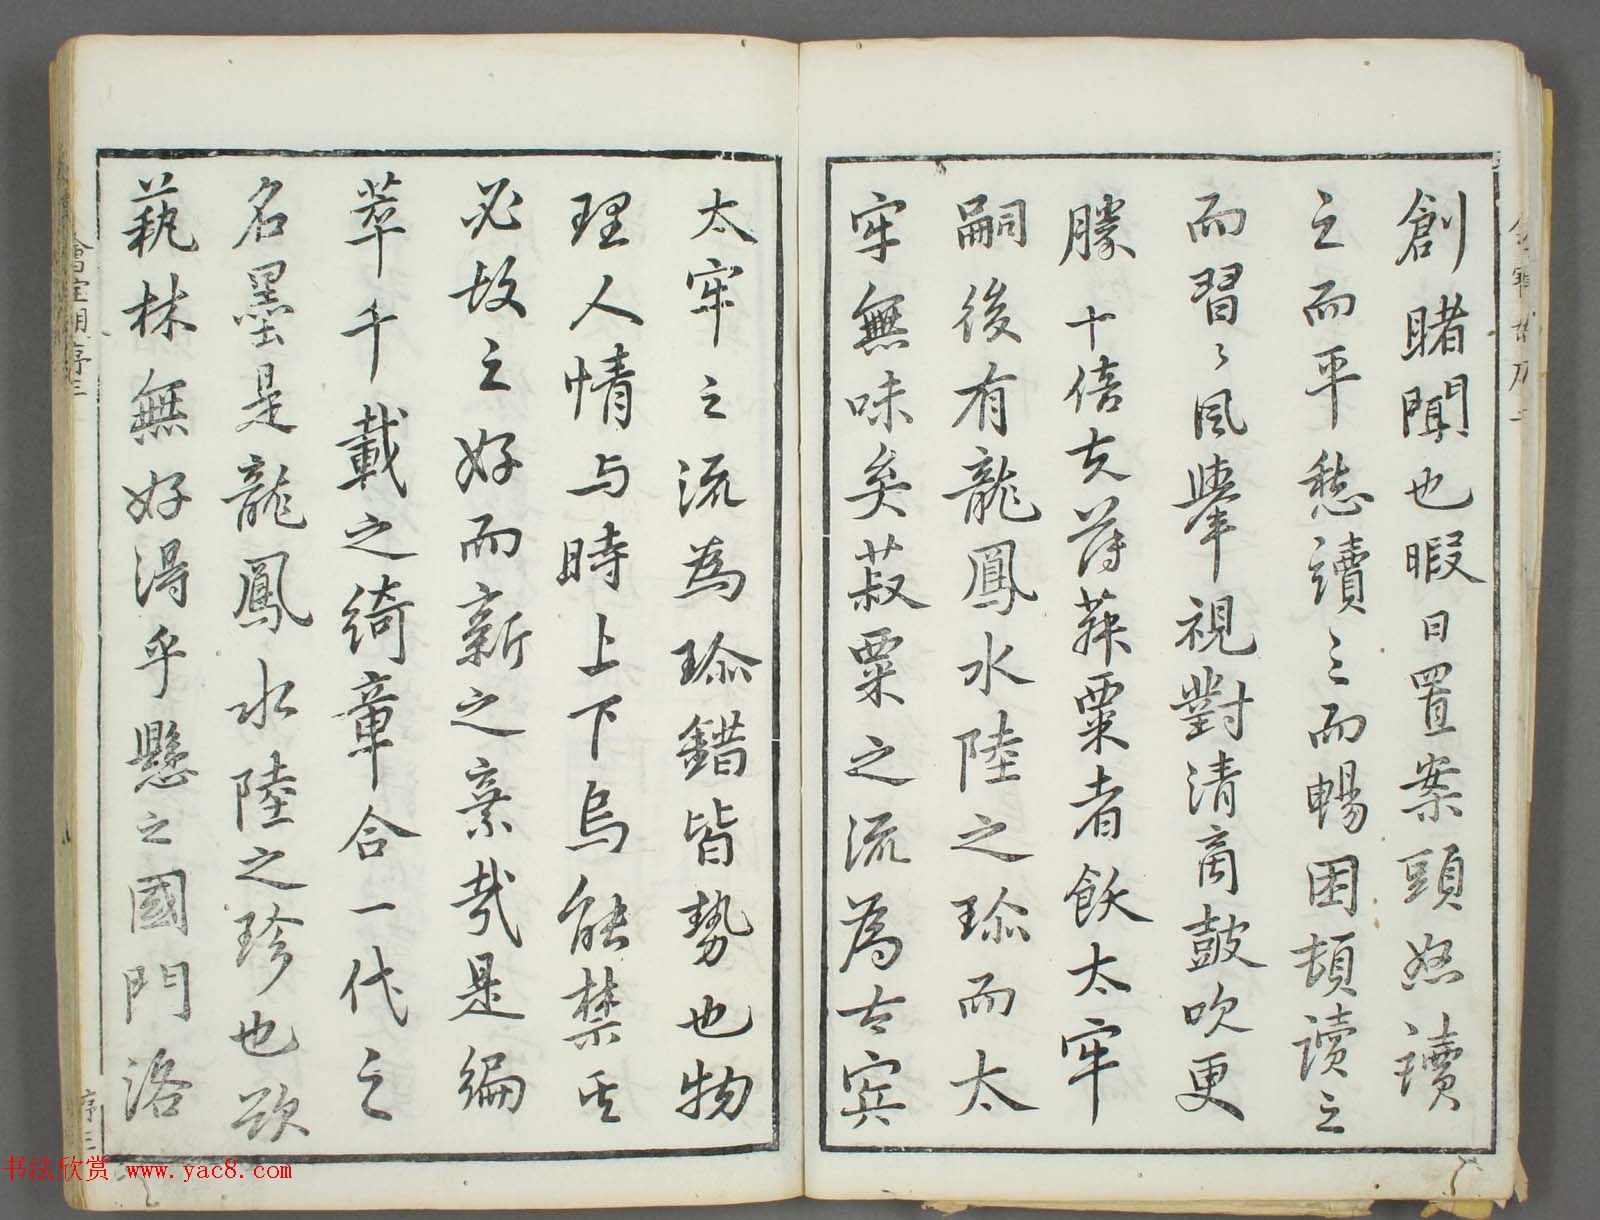 創睹聞也暇日置案頭怒讀
之而平愁讀之而暢困頓讀之
而習〻風舉視對清商鼓吹更
勝十倍夫薄菽粟者飫太牢
嗣後有龍鳳水陸之珎而太
牢無味矣菽粟之流為太牢
太牢之流為珎錯皆勢也物
理人情与時上下烏能禁其
必故之好而新之棄哉是編
萃千載之綺章合一代之
名墨是龍鳳水陸之珍也欲
藝林無好得乎懸之國門洛
序三
书法欣赏 www.yac8.com